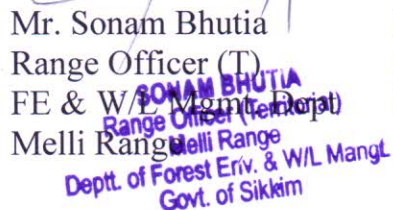 Mr. Sonam Bhutia
Range Officer (T)
FE & W/L Mgmt. Dept
Melli Range
SONAM BHUTIA
Range Officer (Territorial)
Melli Range
Deptt. of Forest Env. & W/L Mangt.
Govt. of Sikkim